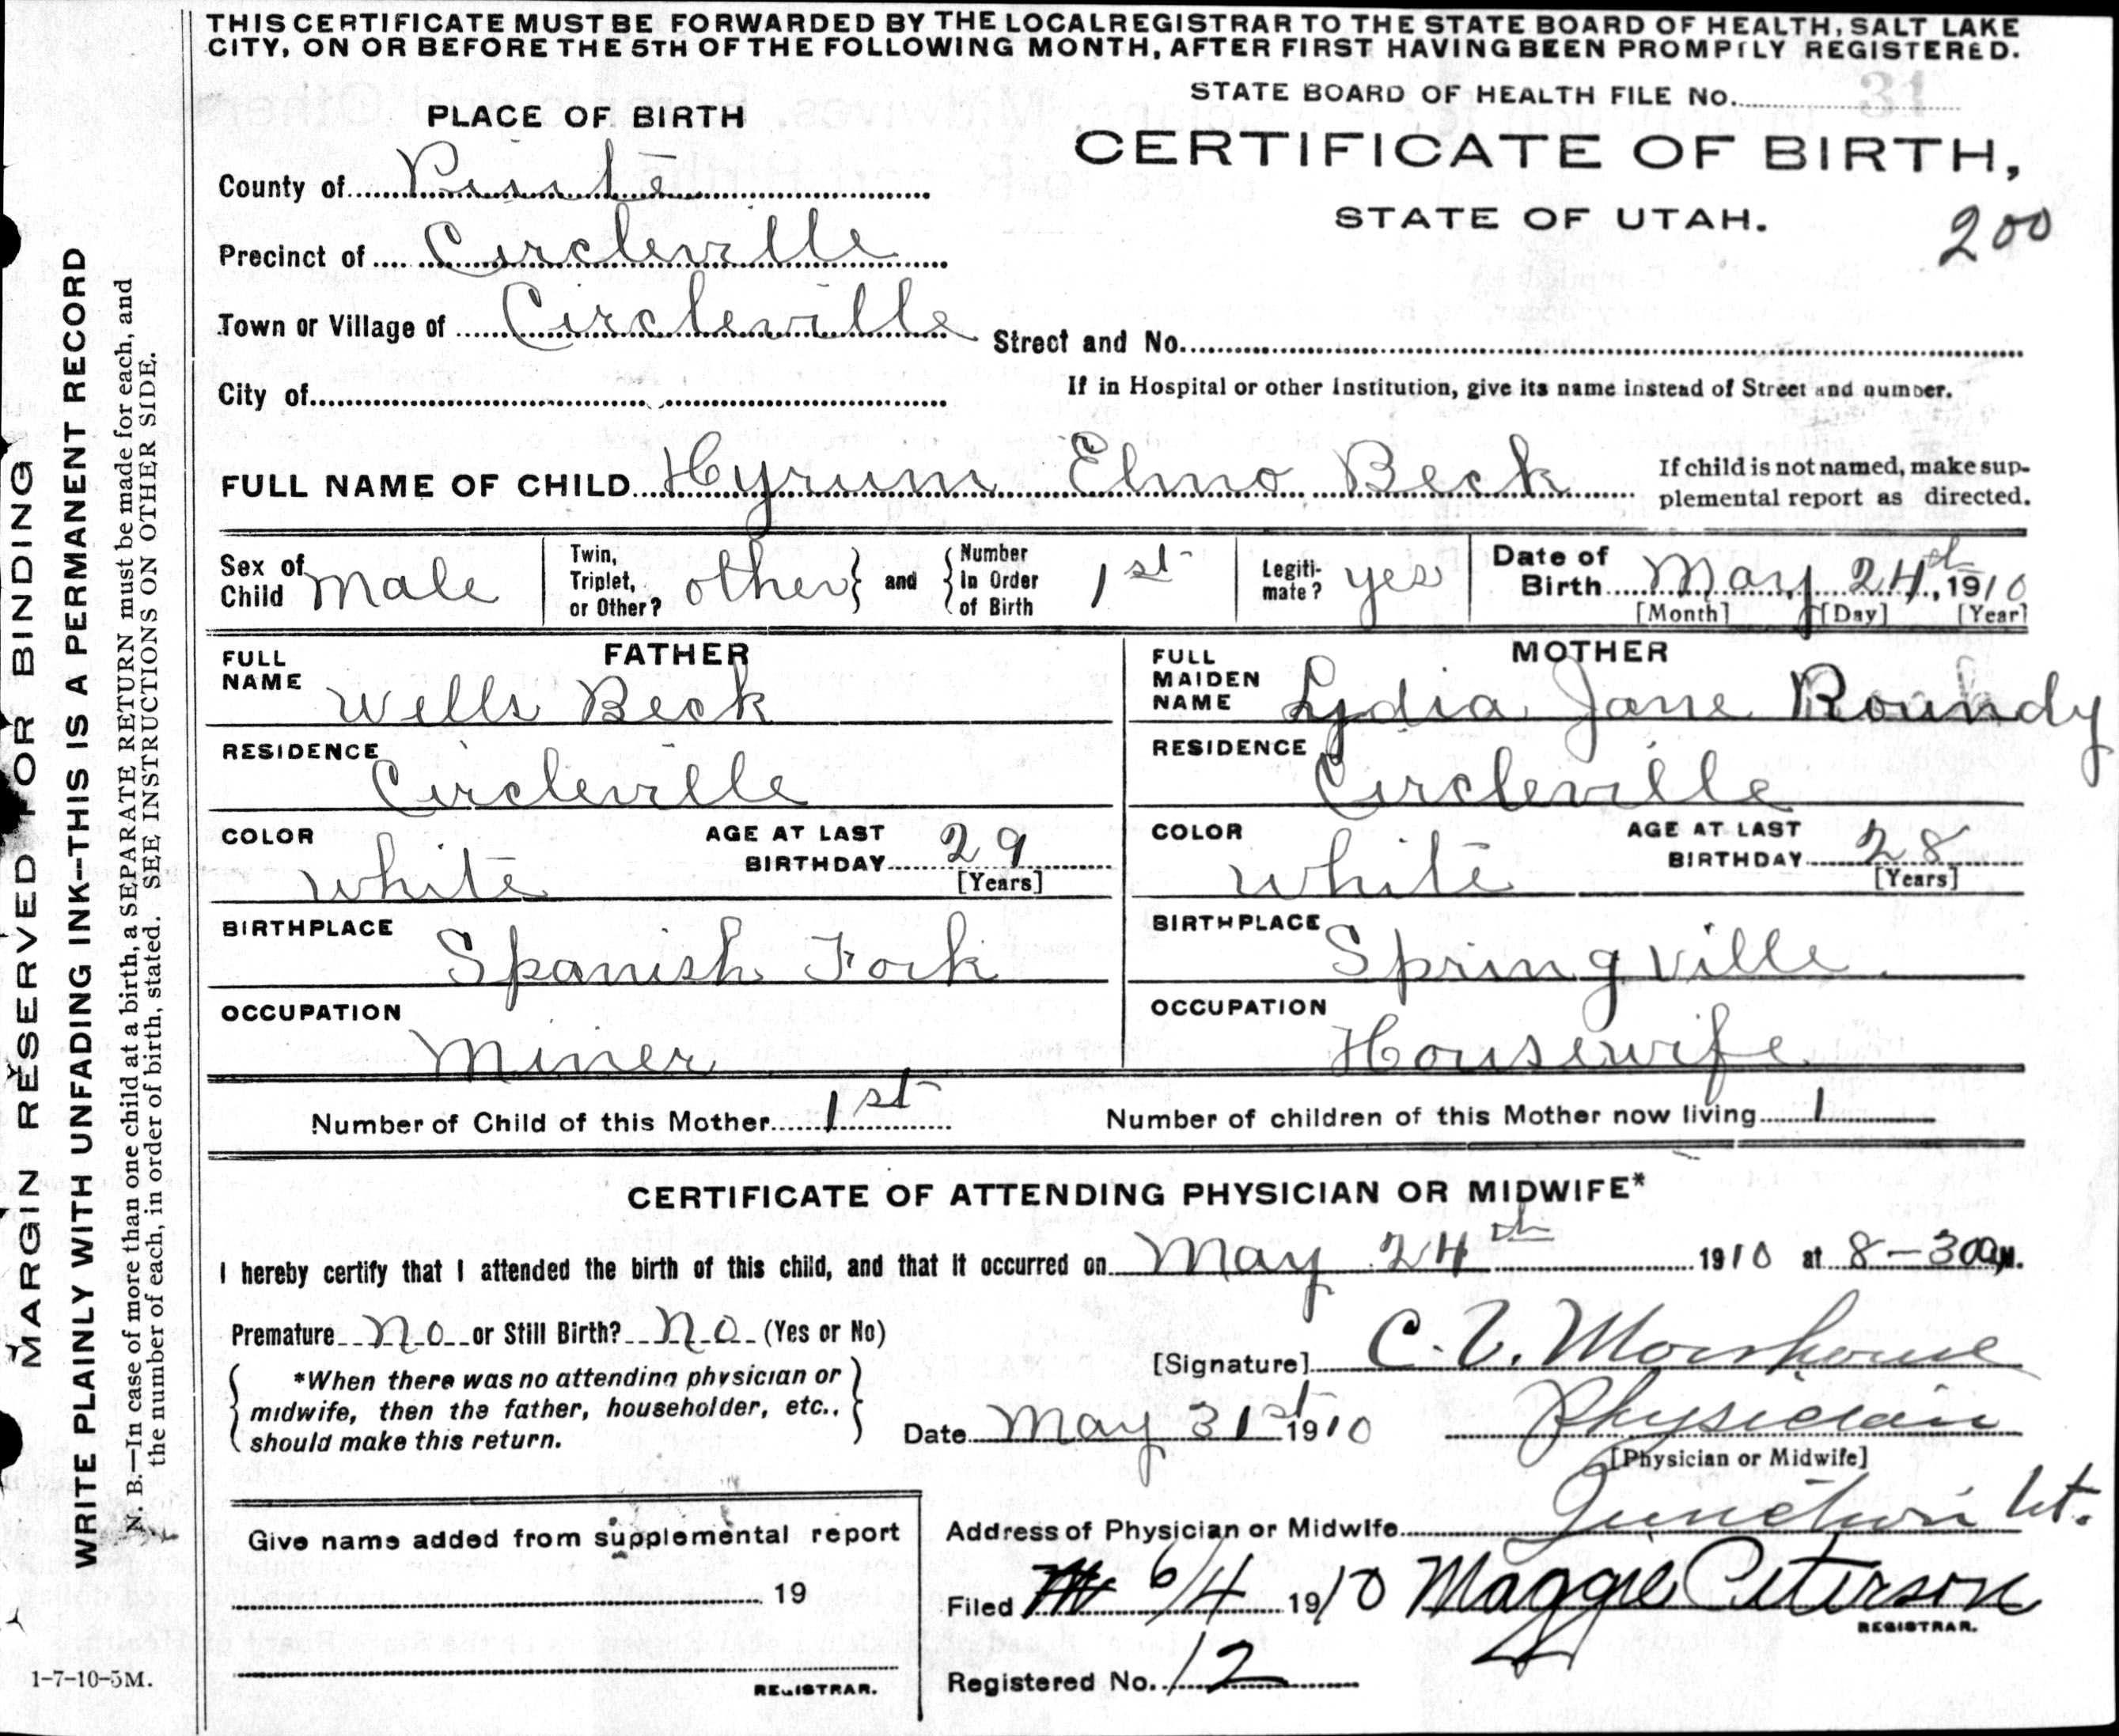 THIS CERTIFICATE MUST BE FORWARDED BY THE LOCAL REGISTRAR TO THE STATE BOARD OF HEALTH, SALT LAKE
CITY, ON OR BEFORE THE 5TH OF THE FOLLOWING MONTH, AFTER FIRST HAVING BEEN PROMPTLY REGISTERED.
STATE BOARD OF HEALTH FILE No. 31
PLACE OF BIRTH
CERTIFICATE OF BIRTH,
STATE OF UTAH.
200
County of Piute
Precinct of Circleville
Town or Village of Circleville
Street and No.
City of
If in Hospital or other Institution, give its name instead of Street and number.
FULL NAME OF CHILD Hyrum Elmo Beck
If child is not named, make sup-
plemental report as directed.
Sex of Child Male
Twin, Triplet, or Other? other and Number in Order of Birth 1st
Legiti-mate? yes
Date of Birth May 24th, 1910
[Month] [Day] [Year]
FATHER
FULL NAME Wells Beck
RESIDENCE Circleville
COLOR white
AGE AT LAST BIRTHDAY 29
[Years]
BIRTHPLACE Spanish Fork
OCCUPATION Miner
MOTHER
FULL MAIDEN NAME Lydia Jane Roundy
RESIDENCE Circleville
COLOR white
AGE AT LAST BIRTHDAY 28
[Years]
BIRTHPLACE Springville
OCCUPATION Housewife
Number of Child of this Mother 1st
Number of children of this Mother now living 1
CERTIFICATE OF ATTENDING PHYSICIAN OR MIDWIFE*
I hereby certify that I attended the birth of this child, and that it occurred on May 24th 1910 at 8-30 a M.
Premature no or Still Birth? no (Yes or No)
[Signature] C. V. Morehouse
*When there was no attending physician or
midwife, then the father, householder, etc.,
should make this return.
Date May 31st 1910
Physician
[Physician or Midwife]
Address of Physician or Midwife Junction Ut.
Give name added from supplemental report
19
REGISTRAR.
Filed 6/4 1910 Maggie Peterson
REGISTRAR.
Registered No. 12
MARGIN RESERVED FOR BINDING
WRITE PLAINLY WITH UNFADING INK--THIS IS A PERMANENT RECORD
N. B.—In case of more than one child at a birth, a SEPARATE RETURN must be made for each, and
the number of each, in order of birth, stated. SEE INSTRUCTIONS ON OTHER SIDE.
1-7-10-5M.